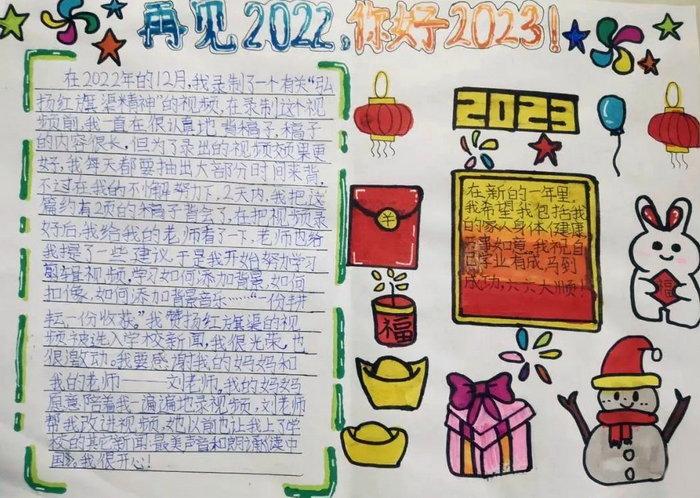 再见2022,你好2023!
在2022年的12月,我录制了一个有关“弘
扬红旗渠精神”的视频,在录制这个视
频前,我一直在很认真地背稿子,稿子
的内容很长,但为了录出的视频效果更
好,我每天都要抽出大部分时间来背,
不过在我的不懈努力下,2天内,我把这
篇约有2页的稿子背会了。在把视频录
好后,我给我的老师看了一下,老师也给
我提了一些建议,于是我开始努力学习
剪辑视频,学习如何添加背景,如何
扣像,如何添加背景音乐……“一份耕
耘一份收获。”我赞扬红旗渠的视
频被选入学校新闻,我很光荣,也
很激动。我要感谢我的妈妈和
我的老师——刘老师。我的妈妈
愿意陪着我一遍遍地录视频,刘老师
帮我改进视频,她以前也让我上了学
校的其它新闻:最美声音和朗诵读中
国》,我很开心!
¥
福
2023
在新的一年里,
我希望我包括我
的家人身体健康
万事如意。我祝自
己学业有成,马到
成功,六六大顺!
福